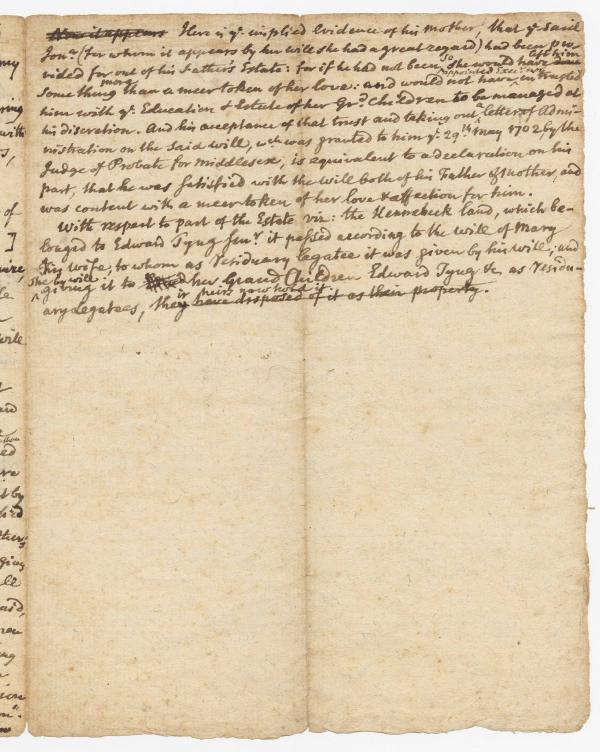 Now it appears Here is ye. implied Evidence of his mother, that ye said
Jonn. (for whom it appears by her will she had a great regard) had been pro-
vided for out of his Father's Estate: for if he had not been so, she would have left him
something more than a meer token of her love: and would not have appointed Execr. & trusted
him with ye. Education & Estate of her Grd. Children to be managed at
his discretion. And his acceptance of that trust and taking out a letter of Admi-
nistration on the said will, wch. was granted to him ye. 29th. May 1702, by the
Judge of Probate for Middlesex, is equivalent to a declaration on his
part, that he was satisfied with the will both of his Father & mother, and
was content with a meer token of her love & affection for him.
With respect to part of the Estate viz: the Kennebeck land, which be-
longed to Edward Tyng Senr. it passed according to the will of Mary
his Wife, to whom as residuary legatee it was given by his will; and
she by will giving it to her Grand Children Edward Tyng &c, as residu-
ary legatees, their heirs now hold it. they have disposed of it as their property.
my
with
of
will
ed
by
ell
said,